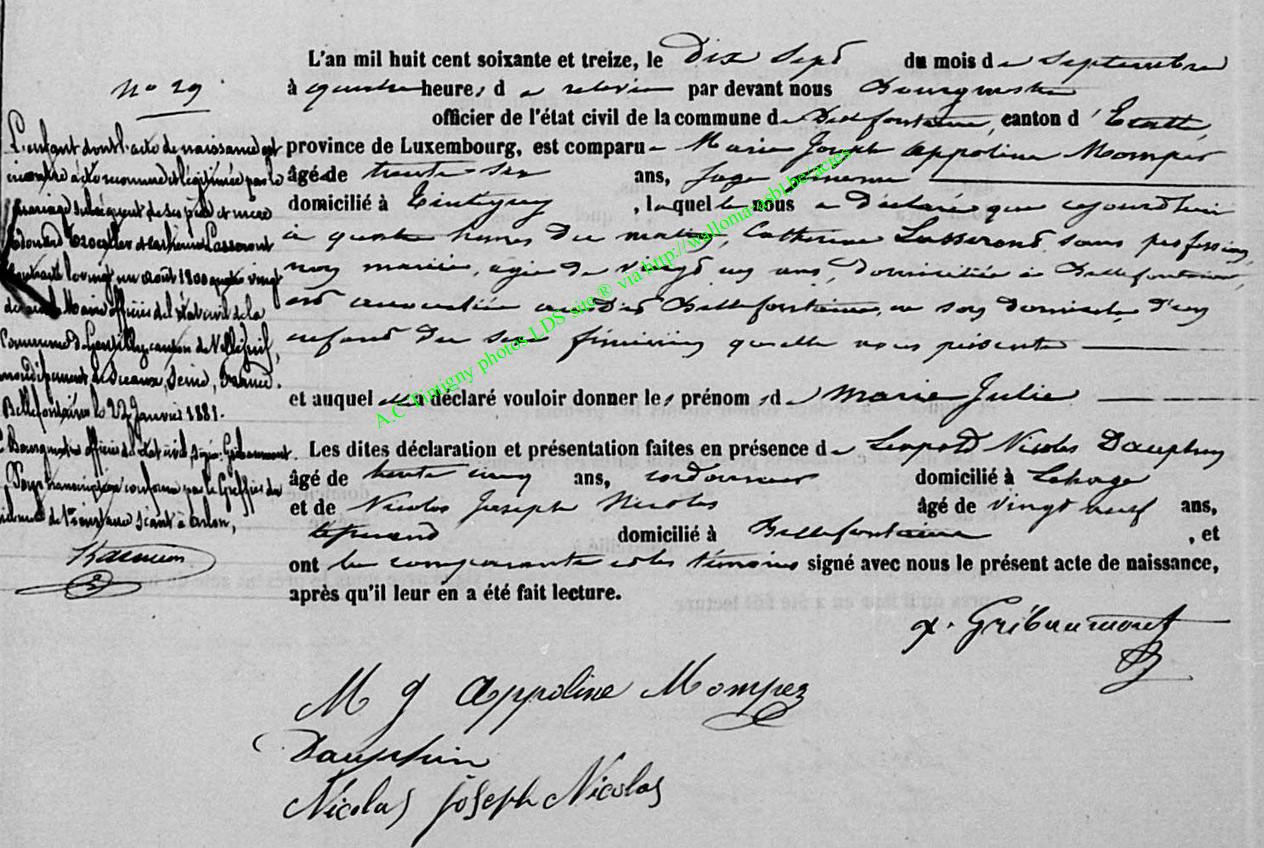 No 29
L'enfant dont l'acte de naissance est
inscrit ci-contre a été reconnu et légitimée par le
mariage subséquent de ses père et mère
Edouard et Catherine Lasseront
contracté le vingt un août 1800 quatre vingt
devant le Maire officier de l'état civil de la
Commune de Gentilly, canton de Villejuif,
arrondissement de Sceaux, Seine, France.
Bellefontaine le 22 Janvier 1881.
Le Bourgmestre officier de l'état civil signé: Gribaumont.
Pour transcription conforme par le Greffier du
tribunal de 1re instance séant à Arlon,
L'an mil huit cent soixante et treize, le dix sept du mois de Septembre
à quatre heures de relevée par devant nous Bourgmestre
officier de l'état civil de la commune de Bellefontaine, canton d'Etalle,
province de Luxembourg, est comparue Marie Joseph Appoline Mompez
âgée de trente six ans, sage femme
domicilié à Tintigny, laquelle nous a déclaré que cejourd'hui
à quatre heures du matin, Catherine Lasseront sans profession,
non mariée, agée de vingt un ans, domiciliée à Bellefontaine,
est accouchée au dit Bellefontaine, en son domicile, d'un
enfant du sexe féminin qu'elle nous présente
et auquel elle a déclaré vouloir donner les prénoms de Marie Julie
Les dites déclaration et présentation faites en présence de Léopold Nicolas Dauphin
âgé de trente cinq ans, cordonnier domicilié à Lahage
et de Nicolas Joseph Nicolas âgé de vingt neuf ans,
domicilié à Bellefontaine, et
ont la comparante et les témoins signé avec nous le présent acte de naissance,
après qu'il leur en a été fait lecture.
x. Gribaumont
M J Appoline Mompez
Dauphin
Nicolas Joseph Nicolas
A.C Tintigny photos LDS sito® via http://wallonia-asbl.be/actes